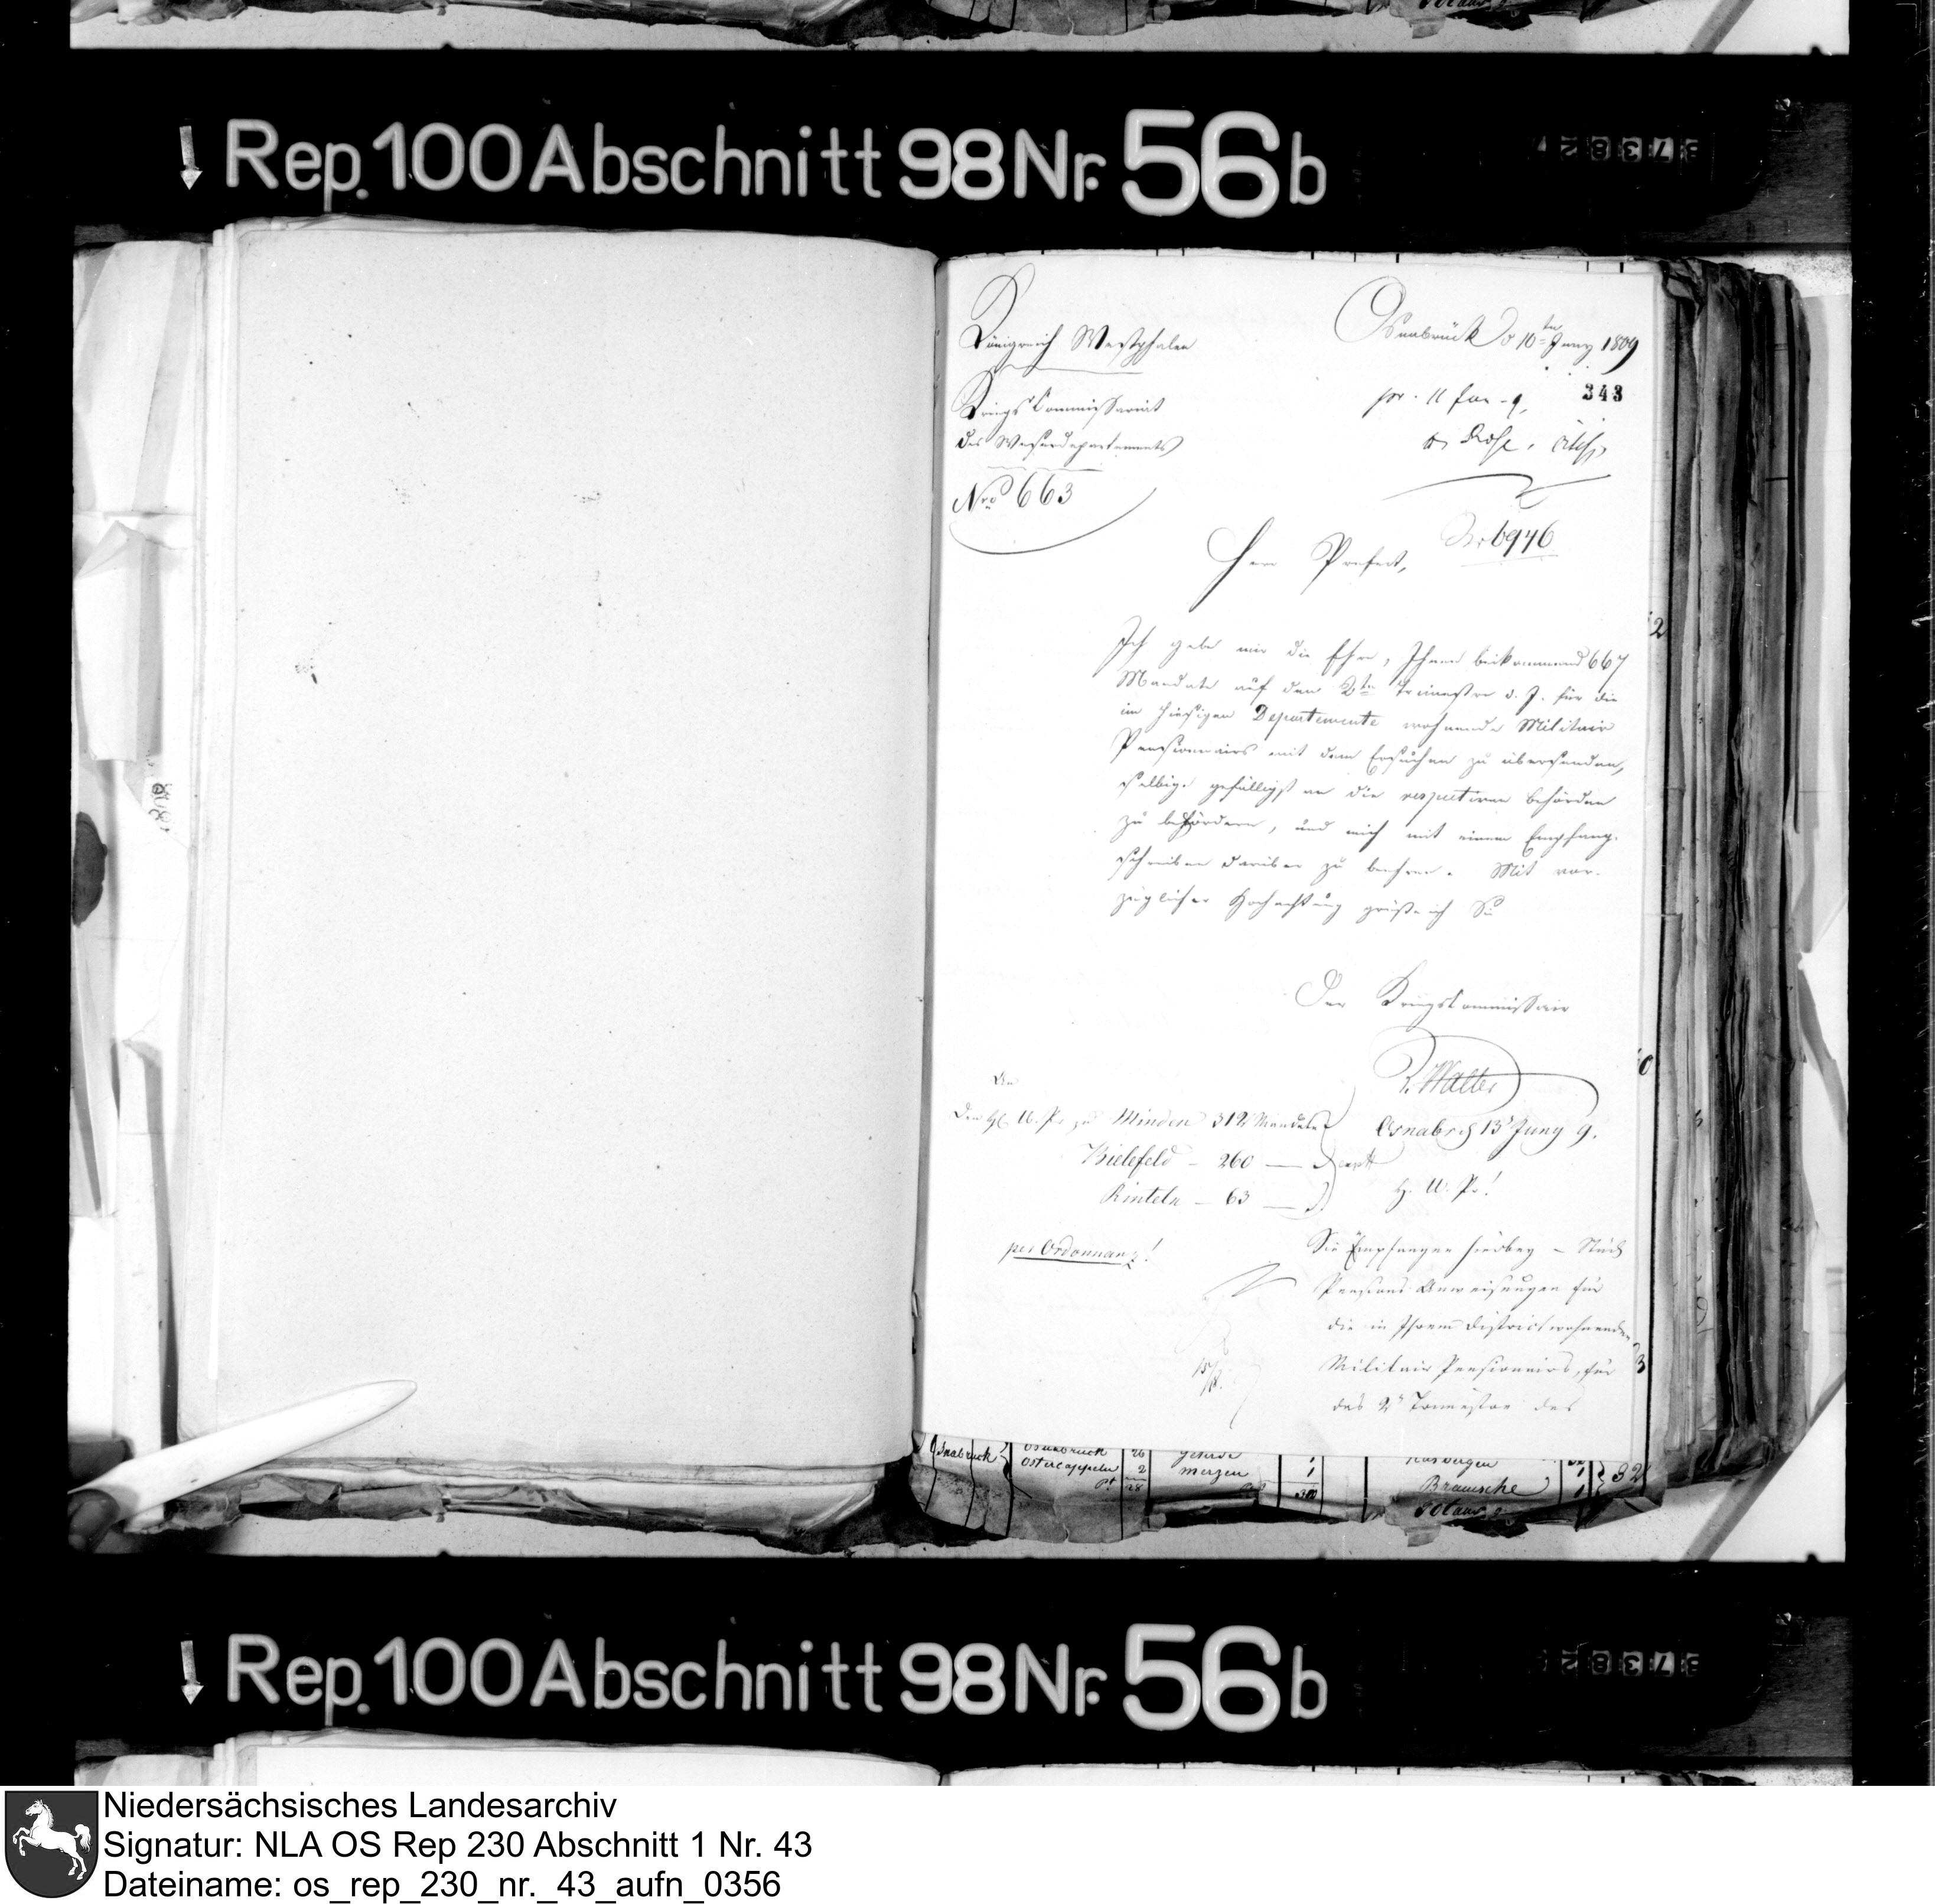 Rep. 100 Abschnitt 98 Nr. 56b
Königreich Westphalen
Kriegs Commissariat
des Weserdepartements
Nro 663
Osnabrück d 10ten Juny 1809
343
pr. 11 Jun. 9.
Nr 6946
Herr Praefect,
Ich gebe mir die Ehre, Ihnen beikommend 667
Mandate auf den 2ten Trimestre d. J. für die
im hiesigen Departemente wohnende Militair
Pensionnairs mit dem Ersuchen zu übersenden,
selbige gefälligst an die respectiven Behörden
zu befördern, und mich mit einem Empfang-
schreiben darüber zu beehren. Mit vor-
züglicher Hochachtung grüße ich Sie
Der Kriegs Commissair
Walter
An
den H. U. Pr. zu Minden 312 Mandate
Bielefeld – 260 —
Rinteln – 63 —
per Ordonnanz!
Osnabrck 13 Juny 9.
H. U. Pr!
Sie Empfangen hierbey – Stück
Pensions Anweisungen für
die in Ihrem District wohnenden
Militair Pensionnairs, für
das 2te Trimestre des
Osnabruck
Osnabruck 26
Ostercappeln 2
28
Gehrde 1
Merzen 1
Bramsche 1
32
Rep. 100 Abschnitt 98 Nr. 56b
Niedersächsisches Landesarchiv
Signatur: NLA OS Rep 230 Abschnitt 1 Nr. 43
Dateiname: os_rep_230_nr._43_aufn_0356